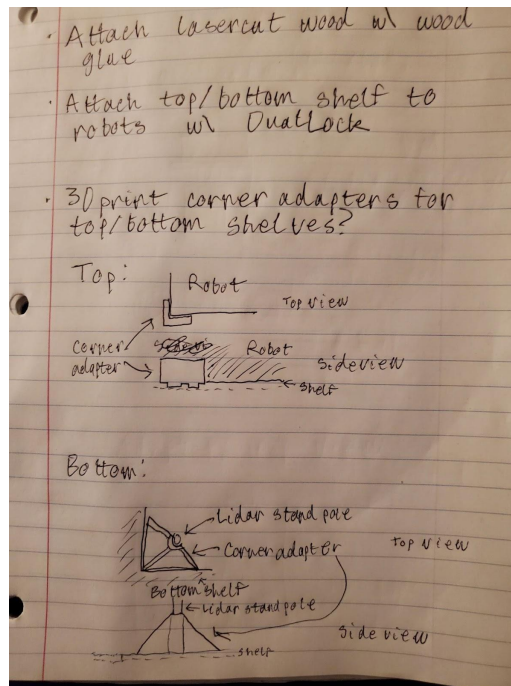 · Attach lasercut wood w\ wood
glue
· Attach top/bottom shelf to
robots w\ DualLock
· 3D print corner adapters for
top/bottom shelves?
Top:
Robot
Top view
Corner
adapter
Robot
Sideview
shelf
Bottom:
Lidar stand pole
Corner adapter
Top view
Bottom shelf
Lidar stand pole
Side view
shelf